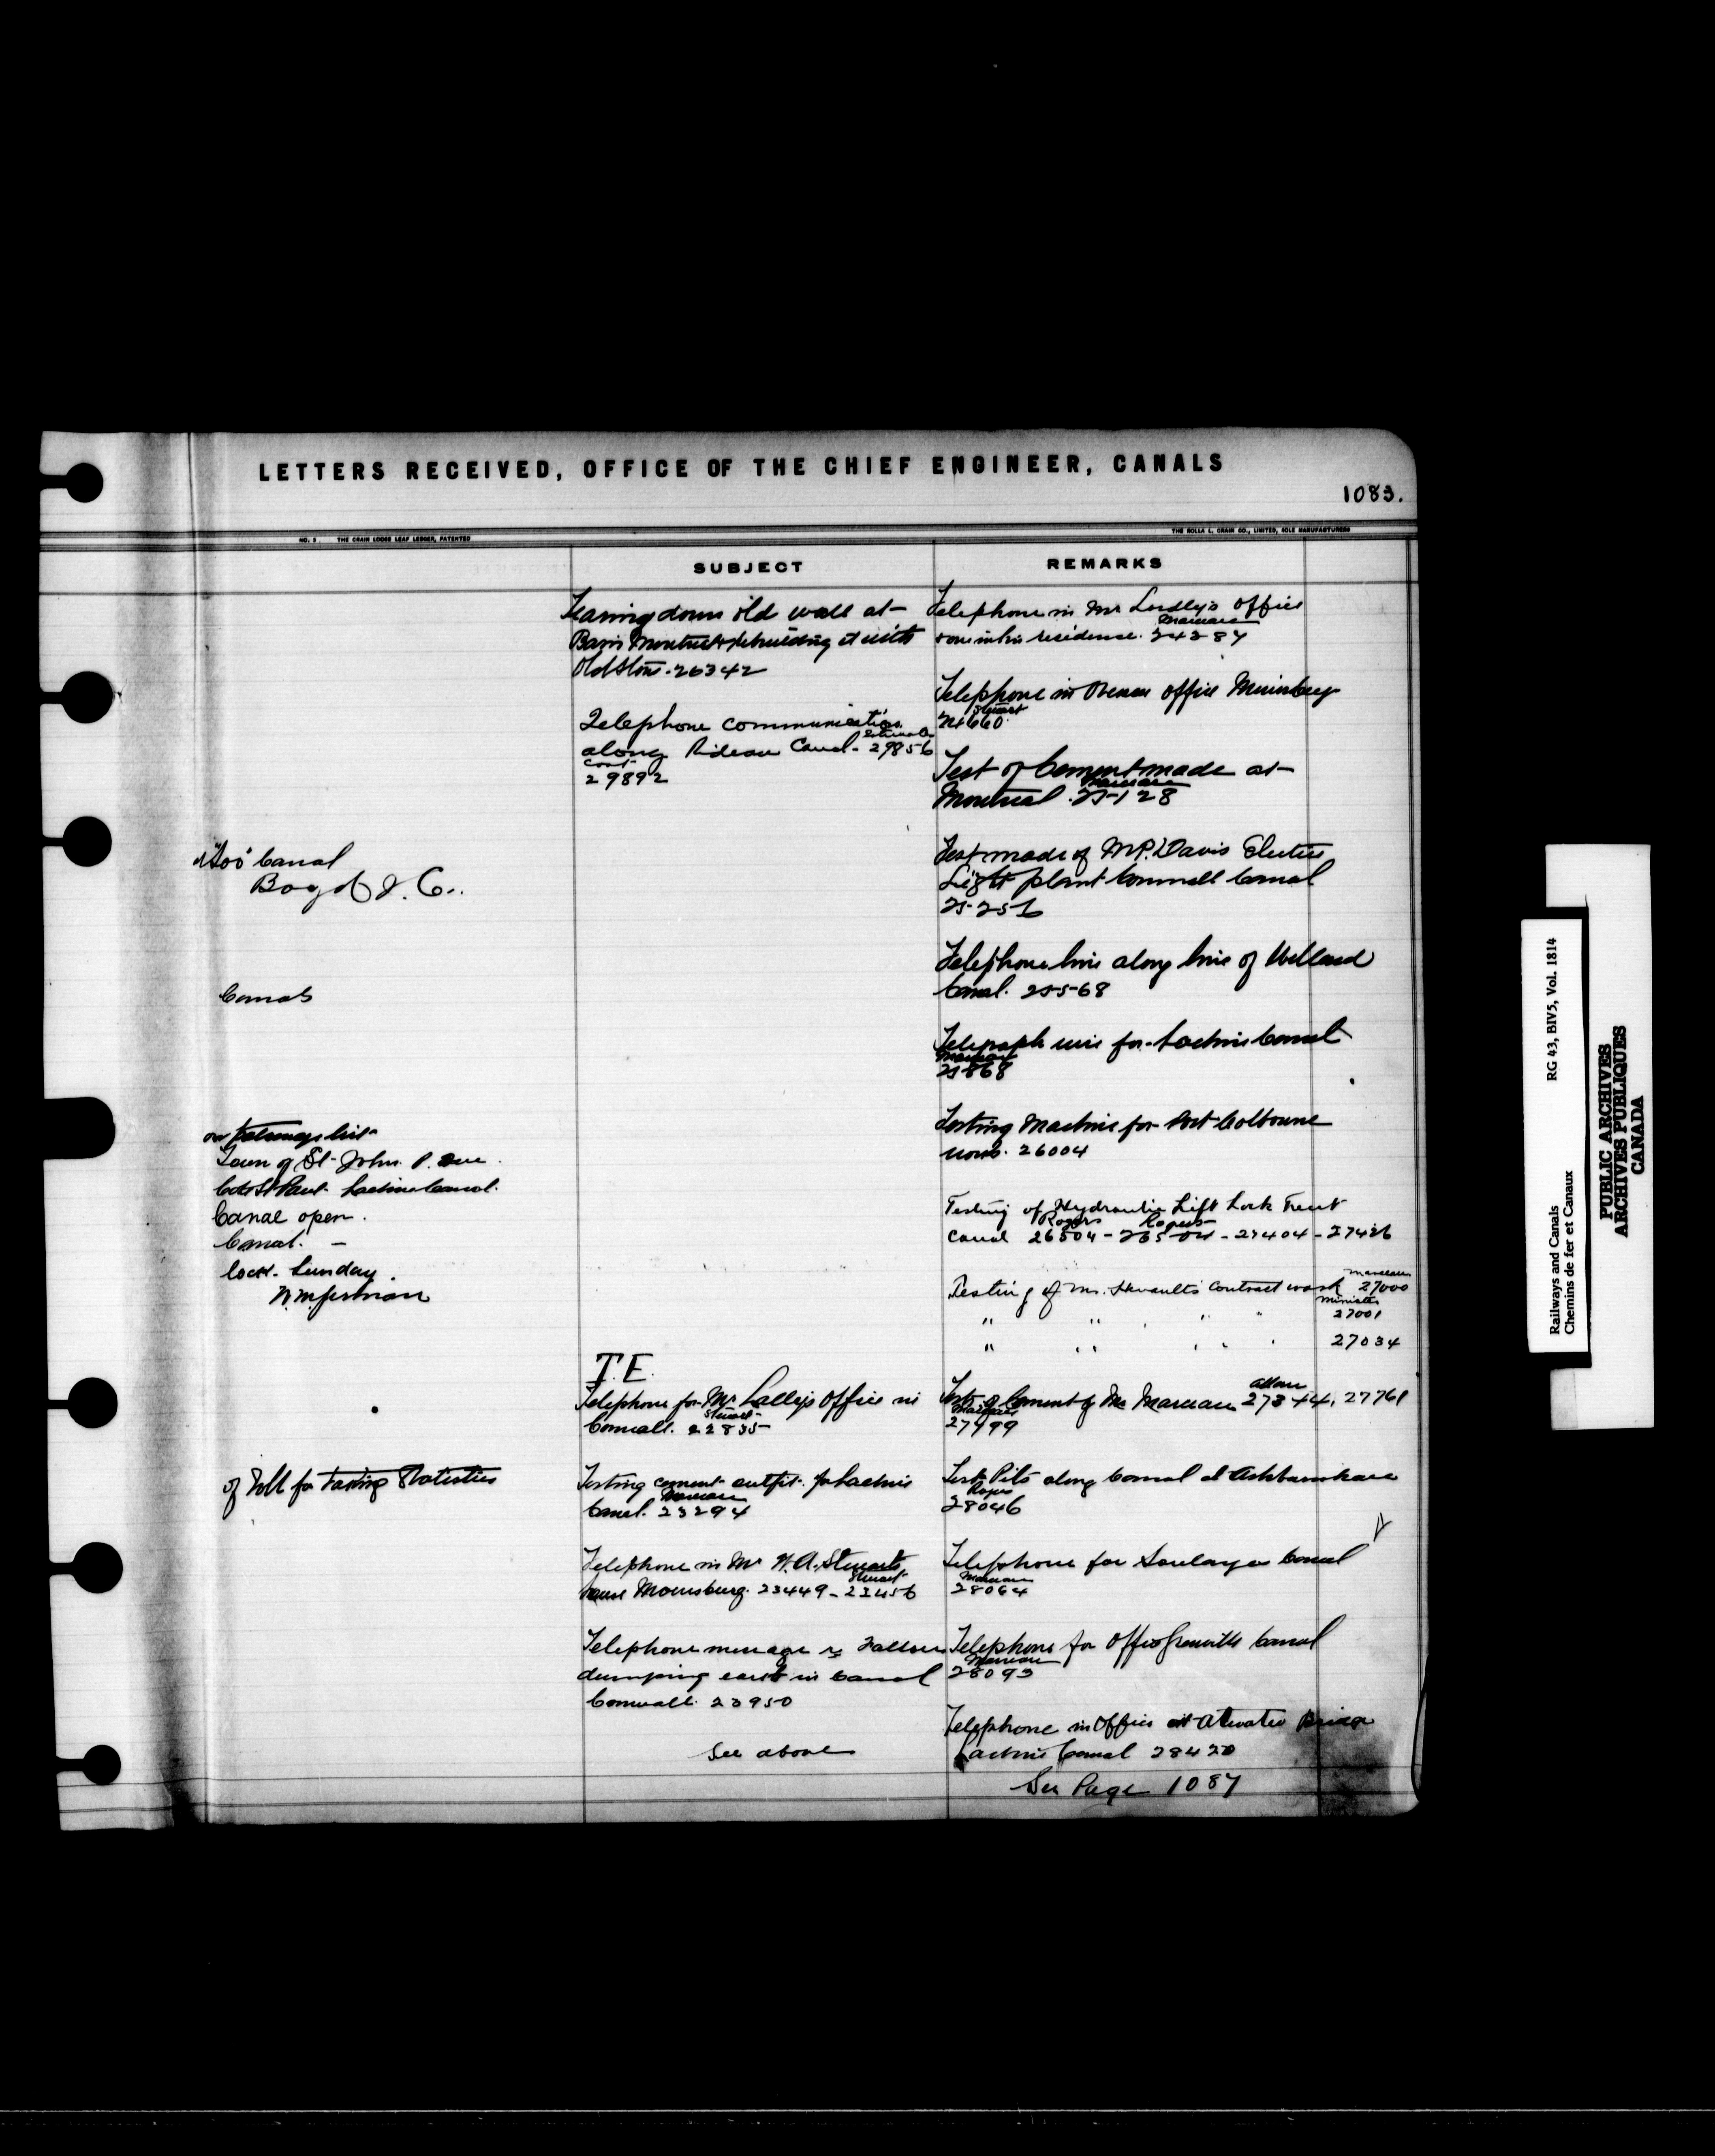 LETTERS RECEIVED, OFFICE OF THE CHIEF ENGINEER, CANALS
1083.
NO. 5 THE CRAIN LOOSE LEAF LEDGER, PATENTED
THE ROLLA L. CRAIN CO., LIMITED, SOLE MANUFACTURERS
SUBJECT
REMARKS
"Soo" Canal
Boyd & Co.
Canals
on patronage list
Town of St. John. P. Que.
Cote St Paul. Lachine Canal.
Canal open.
Canal. -
lock. Sunday.
of Toll for taking Statistics
Tearing down old wall at
Basin Montreal & rebuilding it with
Old Stone. 26342
Telephone communication
Estimate
along Rideau Canal - 29856
Cost
29892
T.E.
Telephone for Mr Lally's Office in
Stuart
Cornwall. 22835
Testing cement outfit for Lachine
Marceau
Canal. 23294
Telephone in Mr H.A. Stuarts
Stuart
house Morrisburg. 23449 - 23456
Telephone message re
dumping earth in Canal
Cornwall. 23950
See above
Telephone in Mr Lordly's Office
Marceau
& one in his residence. 24287
Telephone in office Morrisburg
Stuart
24660
Test of Cement made at
Marceau
Montreal. 25128
Test made of M.P. Davis Electric
Light plant Cornwall Canal
25256
Telephone line along line of Welland
Canal. 25568
Telegraph wire for Lachine Canal
Marceau
25868
Testing Machine for Port Colborne
works. 26004
Testing of Hydraulic Lift Lock Trent
Rogers Rogers
Canal 26504 - 26504 - 27404 - 27426
Marceau
Testing of Mr. Contract work 27000
Minister
" " " " 27001
" " " " 27034
Allan
Tests of Cement by Mr Marceau 27344, 27761
Marceau
27499
Test Pits along Canal at Ashburnham
Rogers
28046
Telephone for Soulanges Canal
Marceau
28064
Telephone for Office Grenville Canal
Marceau
28093
Telephone in Office at Atwater Bridge
Lachine Canal 28420
See Page 1087
Railways and Canals RG 43, BIV5, Vol. 1814
Chemins de fer et Canaux
PUBLIC ARCHIVES
ARCHIVES PUBLIQUES
CANADA